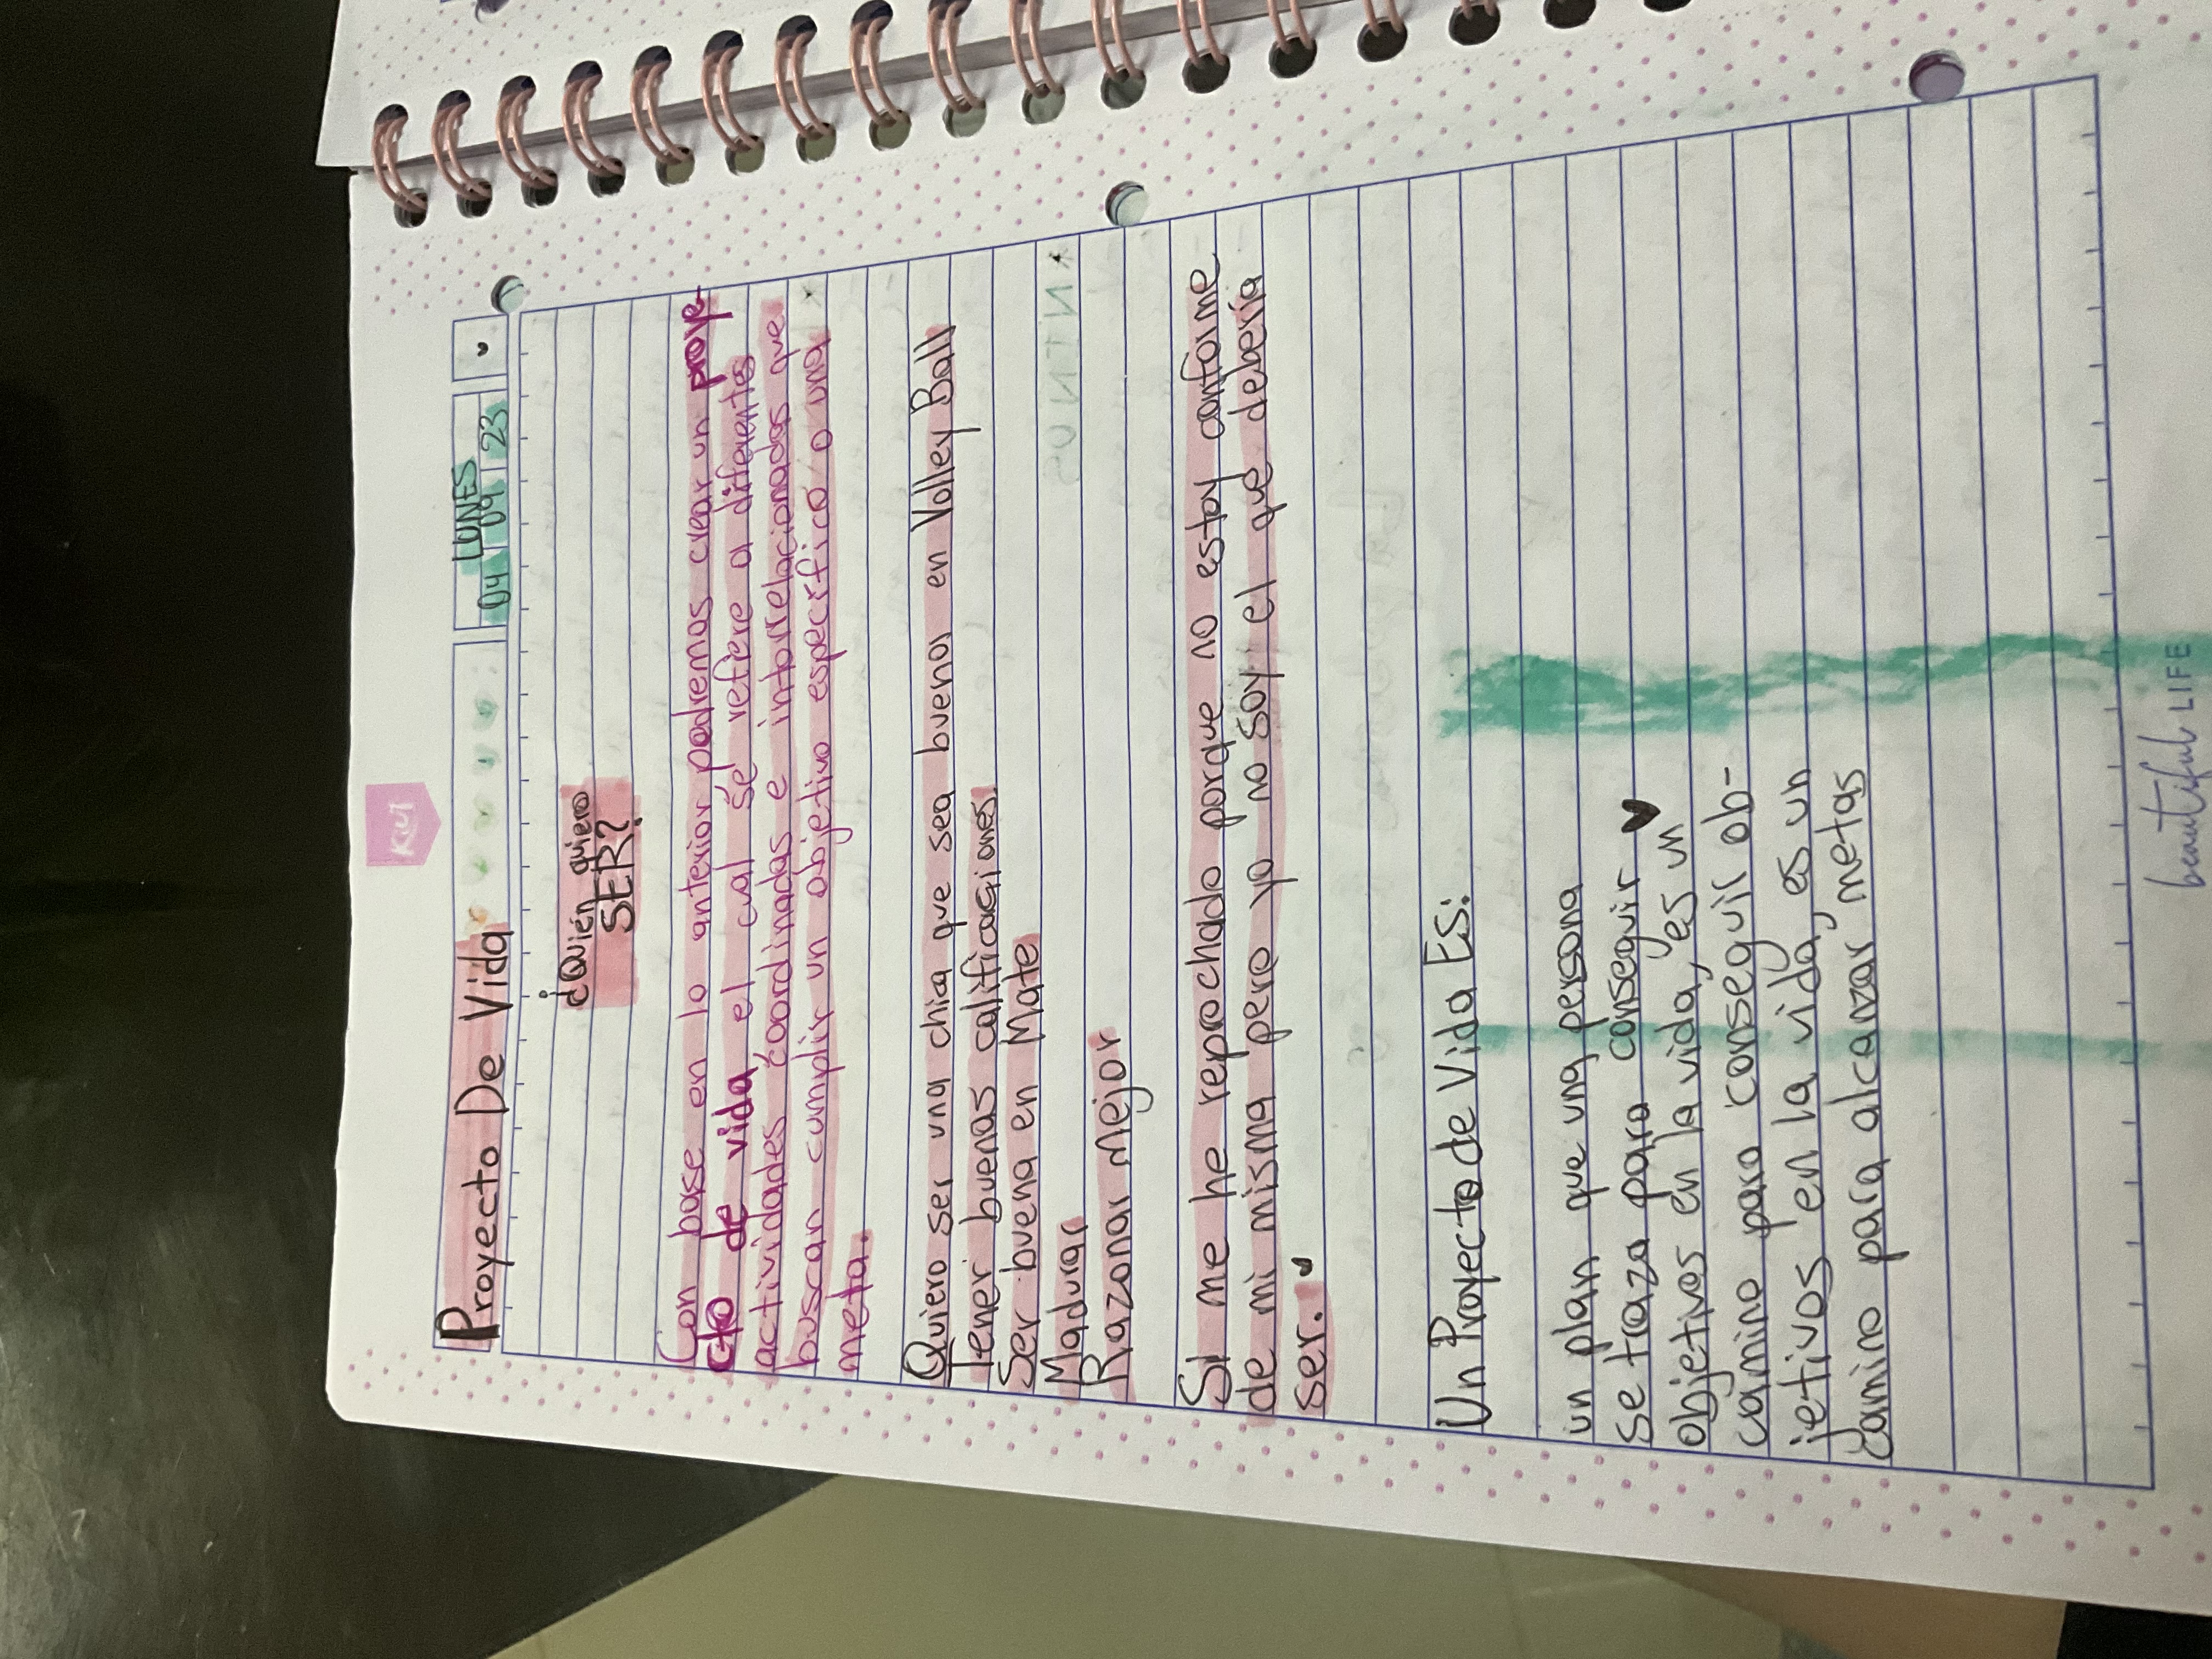 Kiut
Proyecto De Vida
LUNES
04 09 23
¿Quién quiero
SER?
Con base en lo anterior podremos crear un proye-
cto de vida el cual se refiere a diferentes
actividades coordinadas e interrelacionadas que
buscan cumplir un objetivo específico o una
meta.
Quiero ser una chia que sea buenos en Volley Ball
Tener buenas calificaciones.
Ser buena en Mate
Madurar
Razonar mejor
Si me he reprochado porque no estoy conforme
de mi misma pero yo no soy el que debería
ser.
Un Proyecto de Vida Es:
un plan que una persona
se traza para conseguir
objetivos en la vida, es un
camino para conseguir ob-
jetivos en la vida, es un
camino para alcanzar metas
beautiful LIFE